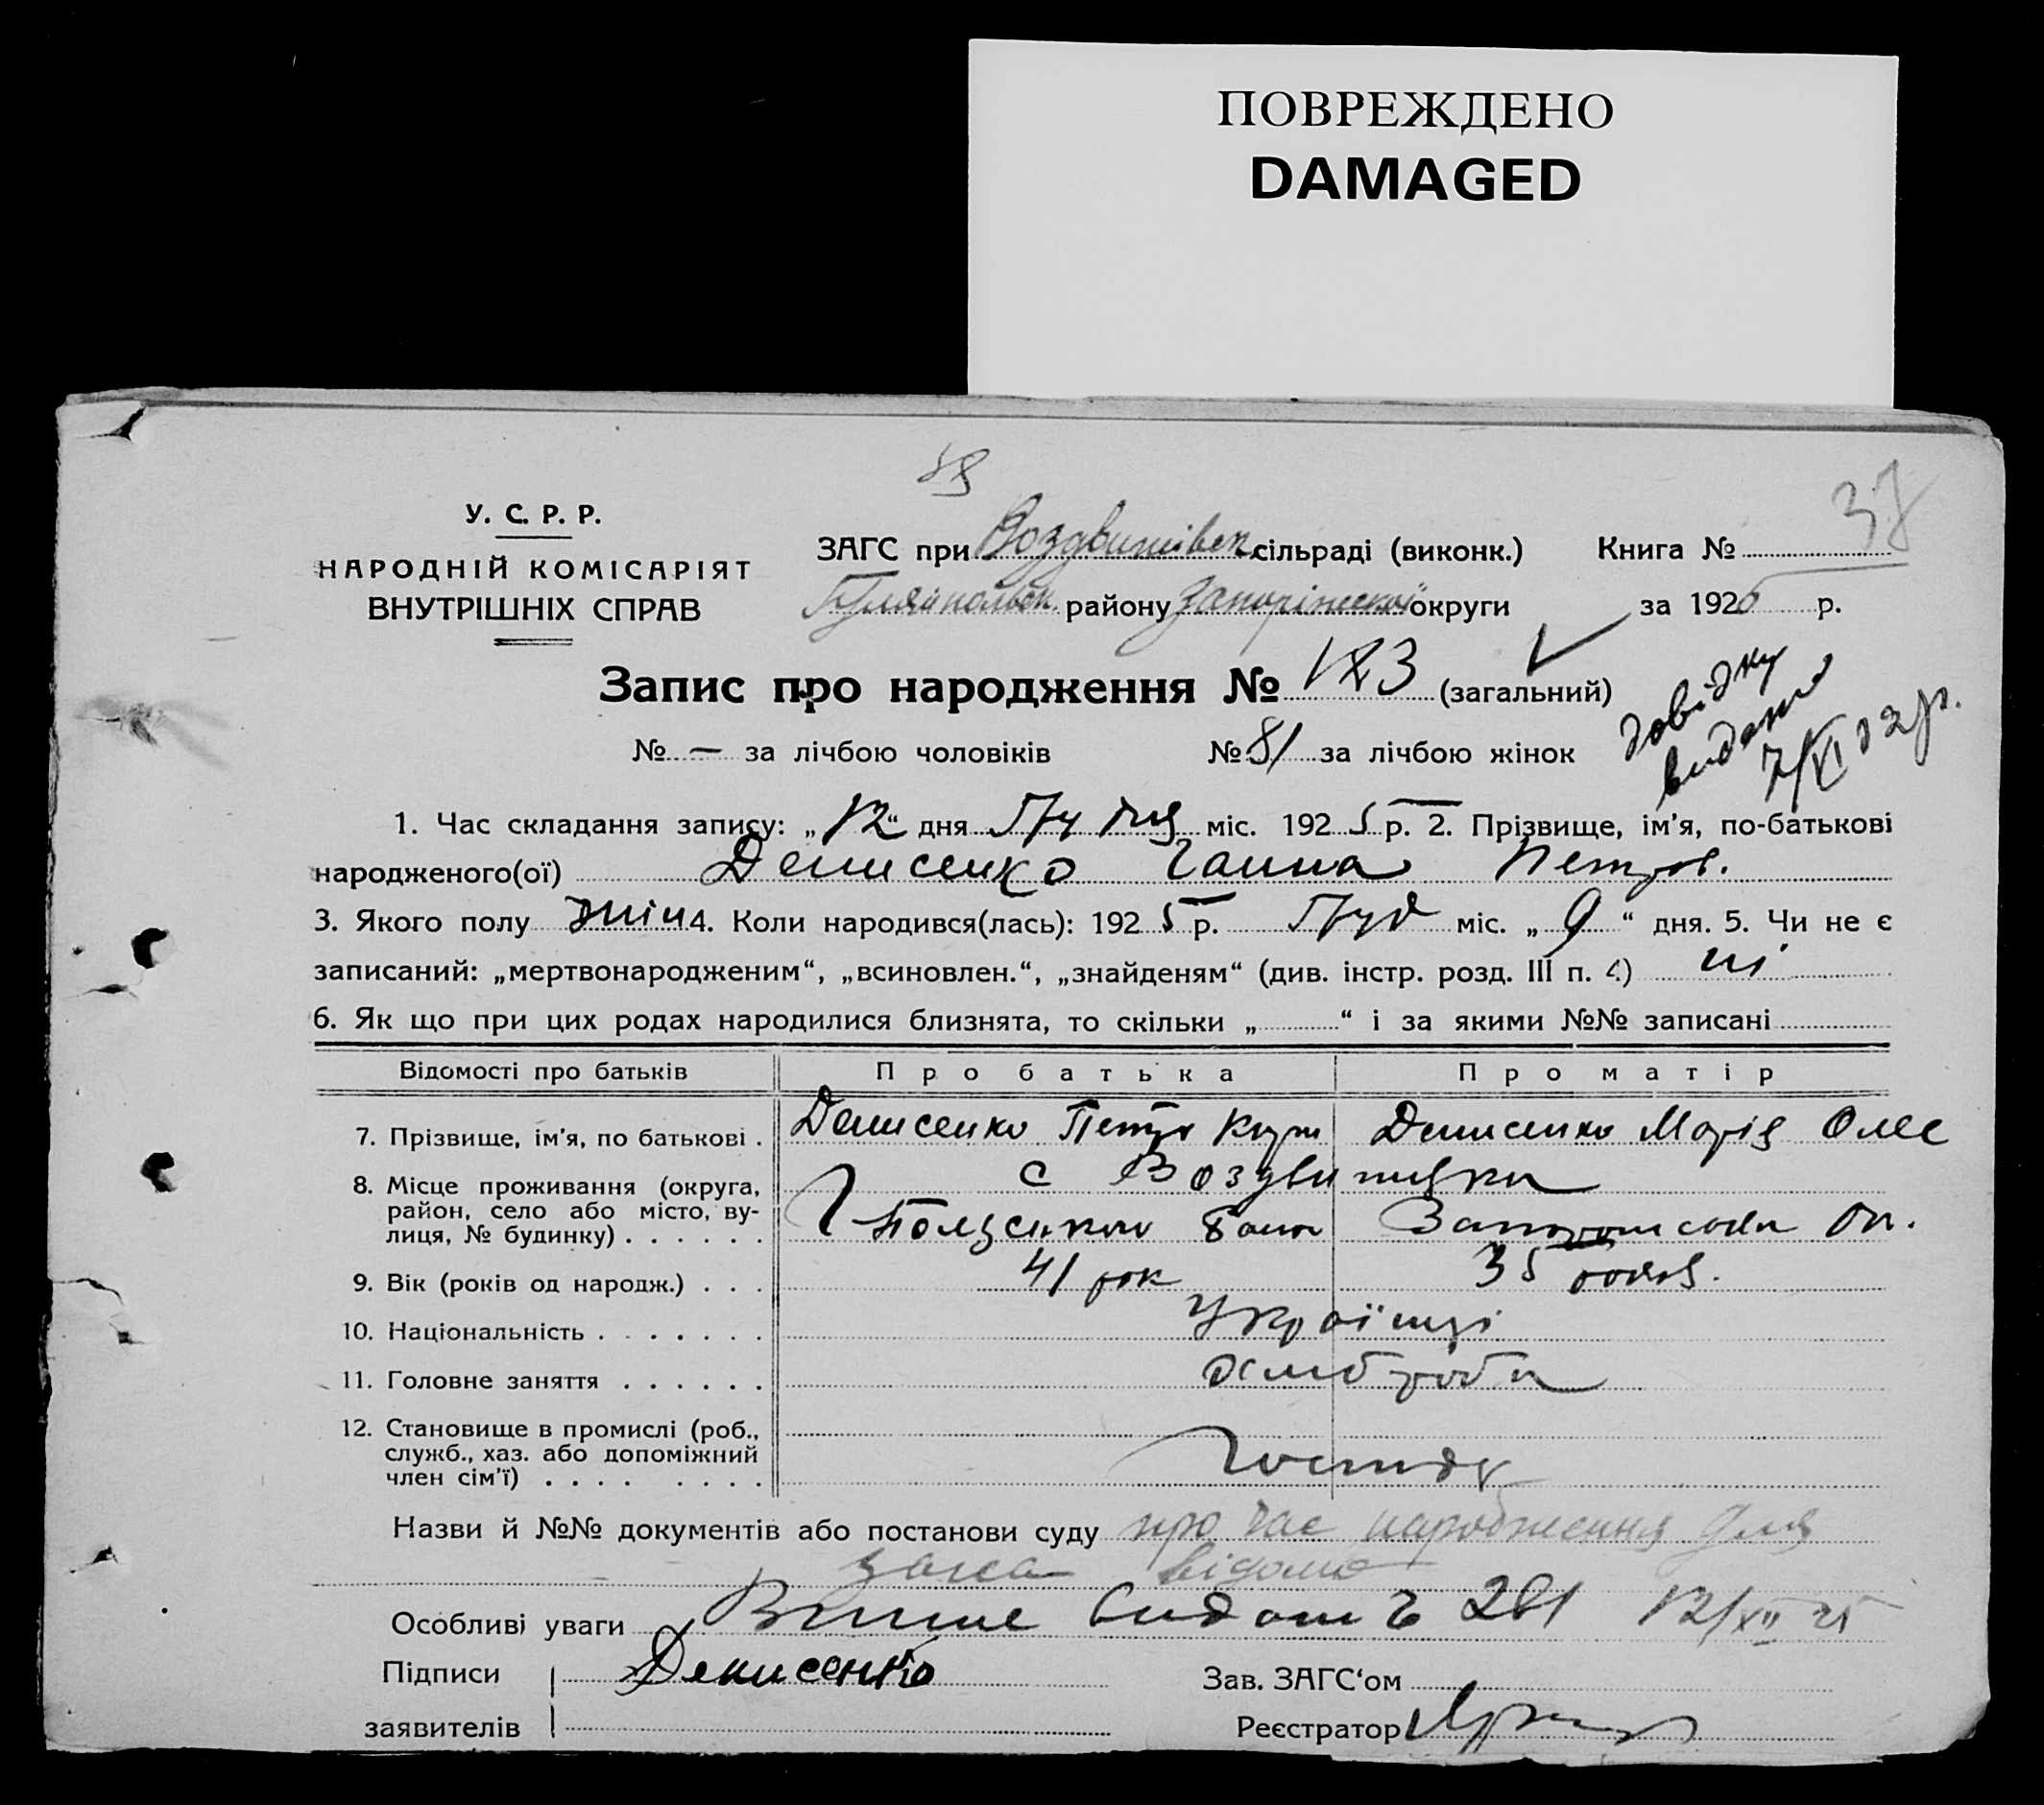 ПОВРЕЖДЕНО
DAMAGED
37
У. С. Р. Р.
НАРОДНІЙ КОМІСАРІЯТ
ВНУТРІШНІХ СПРАВ
ЗАГС при Воздвижівск сільраді (виконк.) Книга №
Гуляйпольск. району Запоріжської округи за 1925 р.
Запис про народження № 123 (загальний)
довідку
видано
7/XI 32 р.
№ — за лічбою чоловіків № 81 за лічбою жінок
1. Час складання запису: „12“ дня Грудня міс. 1925 р. 2. Прізвище, ім’я, по-батькові
народженого(ої) Денисенко Ганна Петров.
3. Якого полу жін 4. Коли народився(лась): 1925 р. Груд міс. „9“ дня. 5. Чи не є
записаний: „мертвонародженим“, „всиновлен.“, „знайденям“ (див. інстр. розд. III п. 4) ні
6. Як що при цих родах народилися близнята, то скільки „ “ і за якими №№ записані
Відомості про батьків Про батька Про матір
7. Прізвище, ім’я, по батькові . Денисенко Петро Денисенко Марія Олек
8. Місце проживання (округа, с Воздвижівка
район, село або місто, ву-
лиця, № будинку) . . . . . .
9. Вік (років од народж.) . . . 41 рок 35 років.
10. Національність . . . . . . . Українці
11. Головне заняття . . . . . . хлібороби
12. Становище в промислі (роб.,
служб., хаз. або допоміжний
член сім’ї) . . . . . . . . Господ
Назви й №№ документів або постанови суду про час народження для
загса відомо
Особливі уваги 281 12/XII 25
Підписи Денисенко Зав. ЗАГС‘ом
заявителів Реєстратор